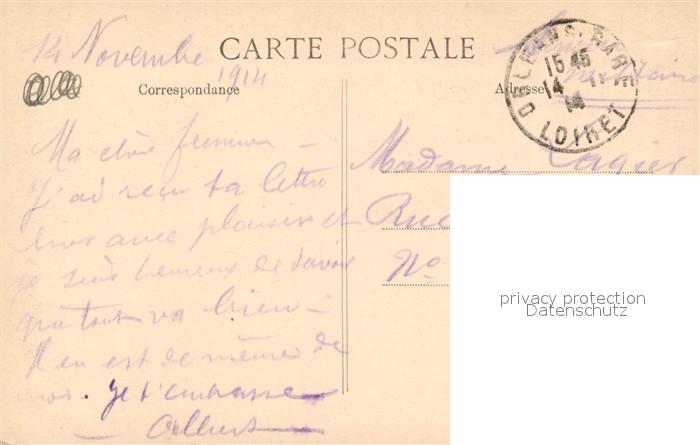 14 Novembre
1914
CARTE POSTALE
Correspondance
Adresse
militaire
ORLEANS-GARE
15 45
14 11
14
LOIRET
Ma chère femme
J'ai reçu ta lettre
hier avec plaisir et
je suis heureux de savoir
que tout va bien
Il en est de même de
moi. Je t'embrasse
Albert
Madame Lagier
Rue
No
privacy protection
Datenschutz